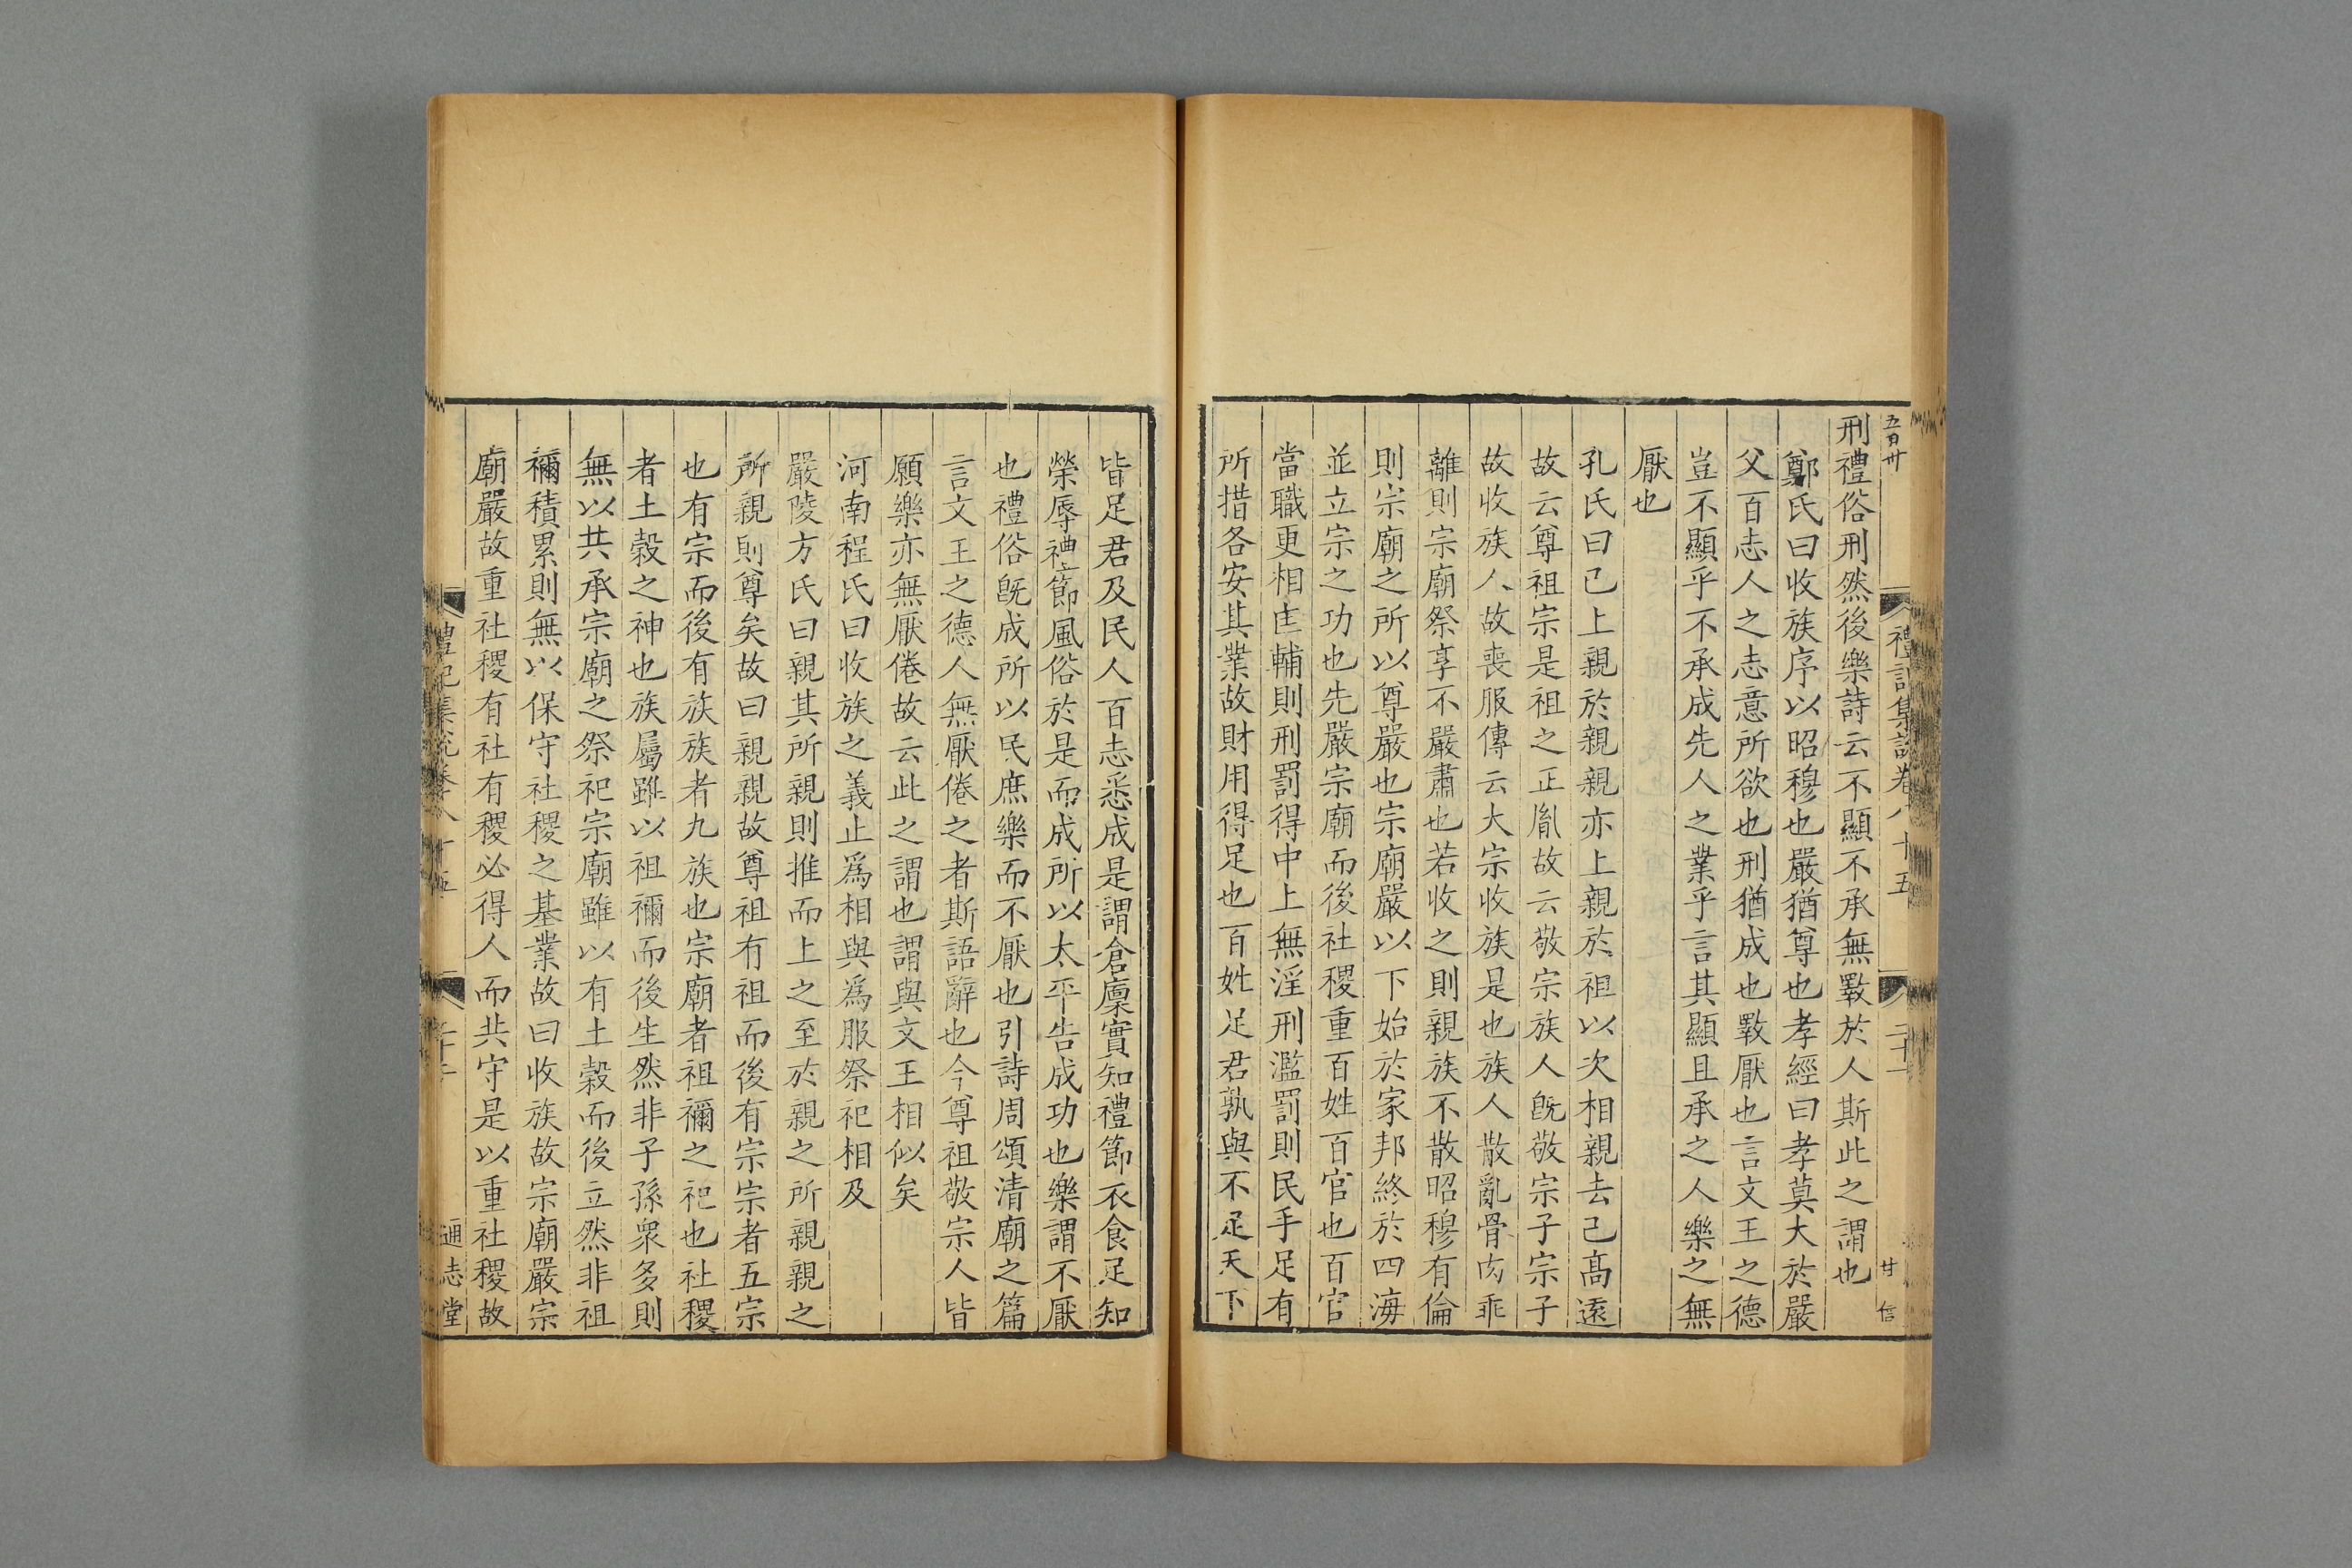 五百卅
禮記集說卷八十五
二十一
甘
信
刑禮俗刑然後樂詩云不顯不承無斁於人斯此之謂也
鄭氏曰收族序以昭穆也嚴猶尊也孝經曰孝莫大於嚴
父百志人之志意所欲也刑猶成也斁厭也言文王之德
豈不顯乎不承成先人之業乎言其顯且承之人樂之無
厭也
孔氏曰己上親於親親亦上親於祖以次相親去己髙遠
故云尊祖宗是祖之正胤故云敬宗族人旣敬宗子宗子
故收族人故喪服傳云大宗收族是也族人散亂骨肉乖
離則宗廟祭享不嚴肅也若收之則親族不散昭穆有倫
則宗廟之所以尊嚴也宗廟嚴以下始於家邦終於四海
並立宗之功也先嚴宗廟而後社稷重百姓百官也百官
當職更相匡輔則刑罰得中上無淫刑濫罰則民手足有
所措各安其業故財用得足也百姓足君孰與不足天下
皆足君及民人百志悉成是謂倉廩實知禮節衣食足知
榮辱禮節風俗於是而成所以太平告成功也樂謂不厭
也禮俗旣成所以民庶樂而不厭也引詩周頌清廟之篇
言文王之德人無厭倦之者斯語辭也今尊祖敬宗人皆
願樂亦無厭倦故云此之謂也謂與文王相似矣
河南程氏曰收族之義止爲相與爲服祭祀相及
嚴陵方氏曰親其所親則推而上之至於親之所親親之
所親則尊矣故曰親親故尊祖有祖而後有宗宗者五宗
也有宗而後有族族者九族也宗廟者祖禰之祀也社稷
者土穀之神也族屬雖以祖禰而後生然非子孫衆多則
無以共承宗廟之祭祀宗廟雖以有土穀而後立然非祖
禰積累則無以保守社稷之基業故曰收族故宗廟嚴宗
廟嚴故重社稷有社有稷必得人而共守是以重社稷故
禮記集說卷八十五
通志堂